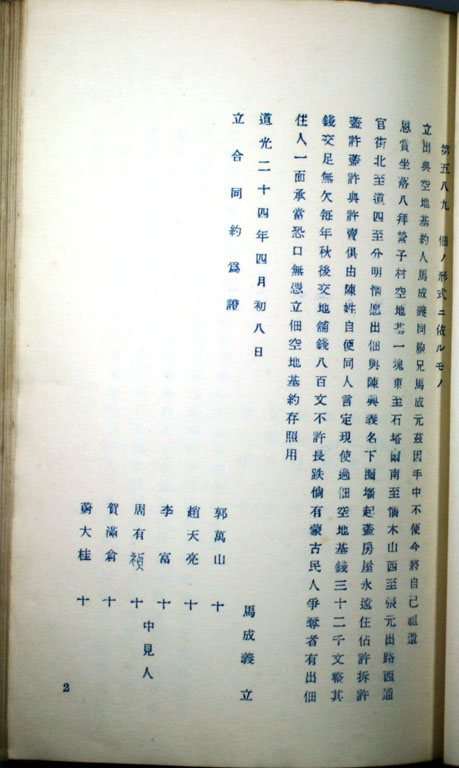 第五八九 佃ノ形式ニ依ルモノ
立出典空地基約人馬成義同胞兄馬成元茲因手中不便今將自己祖遺
恩賞坐落八拜營子村空地基一塊東至石塔爾南至橋木山西至張元出路西通
官街北至道四至分明情愿出佃與陳典義名下圈墻起蓋房屋永遠住佔許拆許
蓋許蓋許典許賣俱由陳姓自便同人言定現使過佃空地基錢三十二千文整其
錢交足無欠每年秋後交地舖錢八百文不許長跌倘有蒙古民人爭奪者有出佃
住人一面承當恐口無憑立佃空地基約存照用
道光二十四年四月初八日
馬成義立
立合同約爲證
郭萬山 十
趙天亮 十
李富 十
中見人
周有禎 十
賀滿倉 十
蔚大桂 十
2